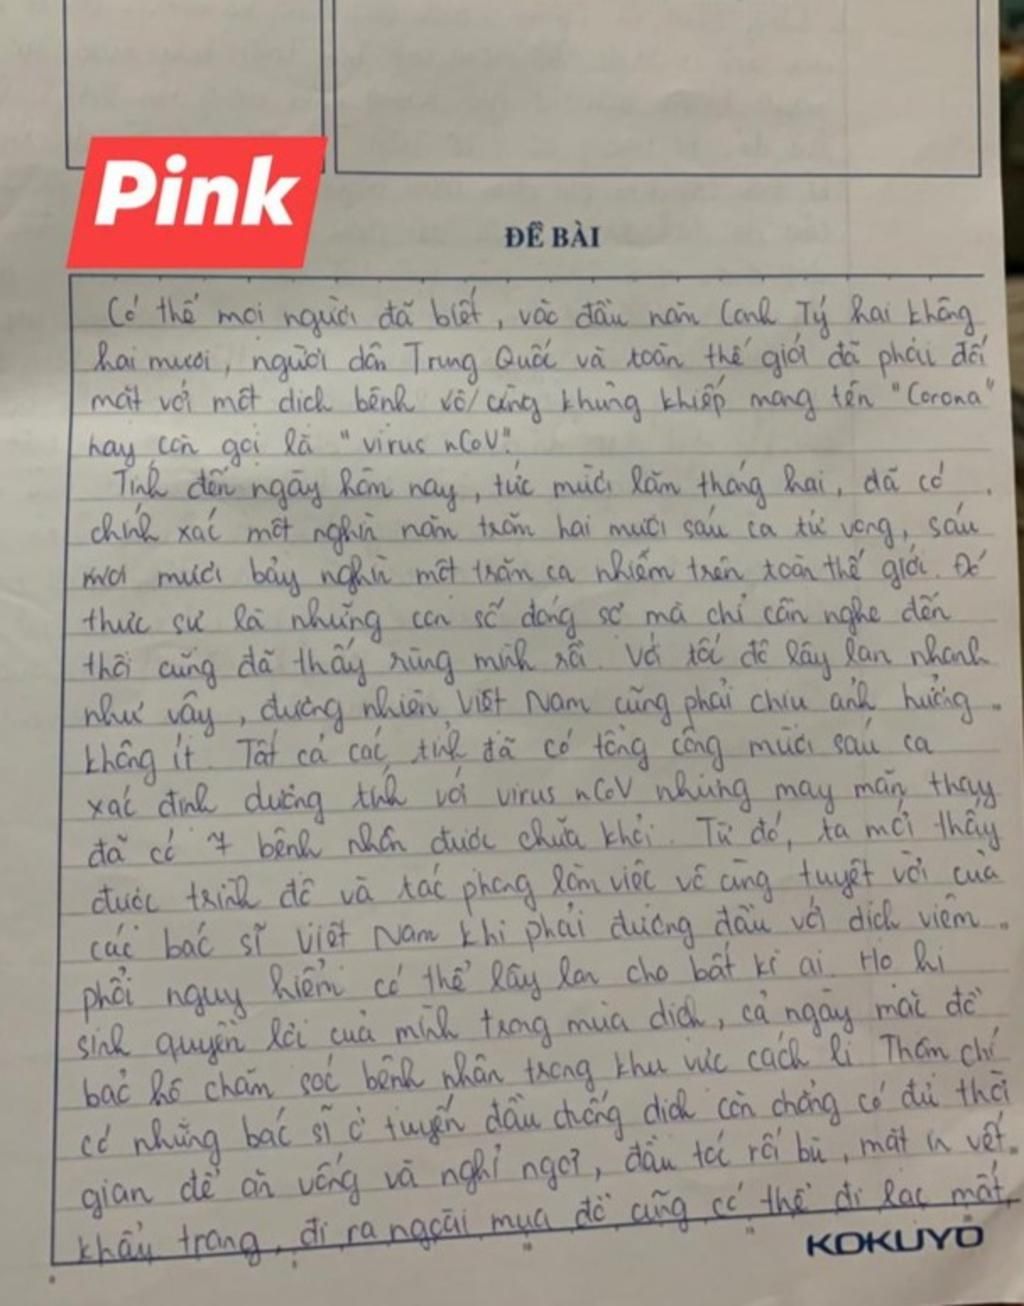 Pink
ĐỀ BÀI
Có thể mọi người đã biết, vào đầu năm Canh Tý hai không
hai mươi, người dân Trung Quốc và toàn thế giới đã phải đối
mặt với một dịch bệnh vô cùng khủng khiếp mang tên "Corona"
hay còn gọi là "virus nCoV".
Tính đến ngày hôm nay, tức mười lăm tháng hai, đã có
chính xác một nghìn năm trăm hai mươi sáu ca tử vong, sáu
mươi bảy nghìn một trăm ca nhiễm trên toàn thế giới. Đó
thực sự là những con số đáng sợ mà chỉ cần nghe đến
thôi cũng đã thấy rùng mình rồi. Với tốc độ lây lan nhanh
như vậy, đương nhiên Việt Nam cũng phải chịu ảnh hưởng
không ít. Tất cả các tỉnh đã có tổng cộng mười sáu ca
xác định dương tính với virus nCoV nhưng may mắn thay
đã có 7 bệnh nhân được chữa khỏi. Từ đó, ta mới thấy
được trình độ và tác phong làm việc vô cùng tuyệt vời của
các bác sĩ Việt Nam khi phải đương đầu với dịch viêm
phổi nguy hiểm có thể lây lan cho bất kì ai. Họ hi
sinh quyền lợi của mình trong mùa dịch, cả ngày mặc đồ
bảo hộ chăm sóc bệnh nhân trong khu vực cách li. Thậm chí
có những bác sĩ ở tuyến đầu chống dịch còn chẳng có đủ thời
gian để ăn uống và nghỉ ngơi, đầu tóc rối bù, mặt in vết
khẩu trang, đi ra ngoài mua đồ cũng có thể đi lạc mất,
KOKUYO